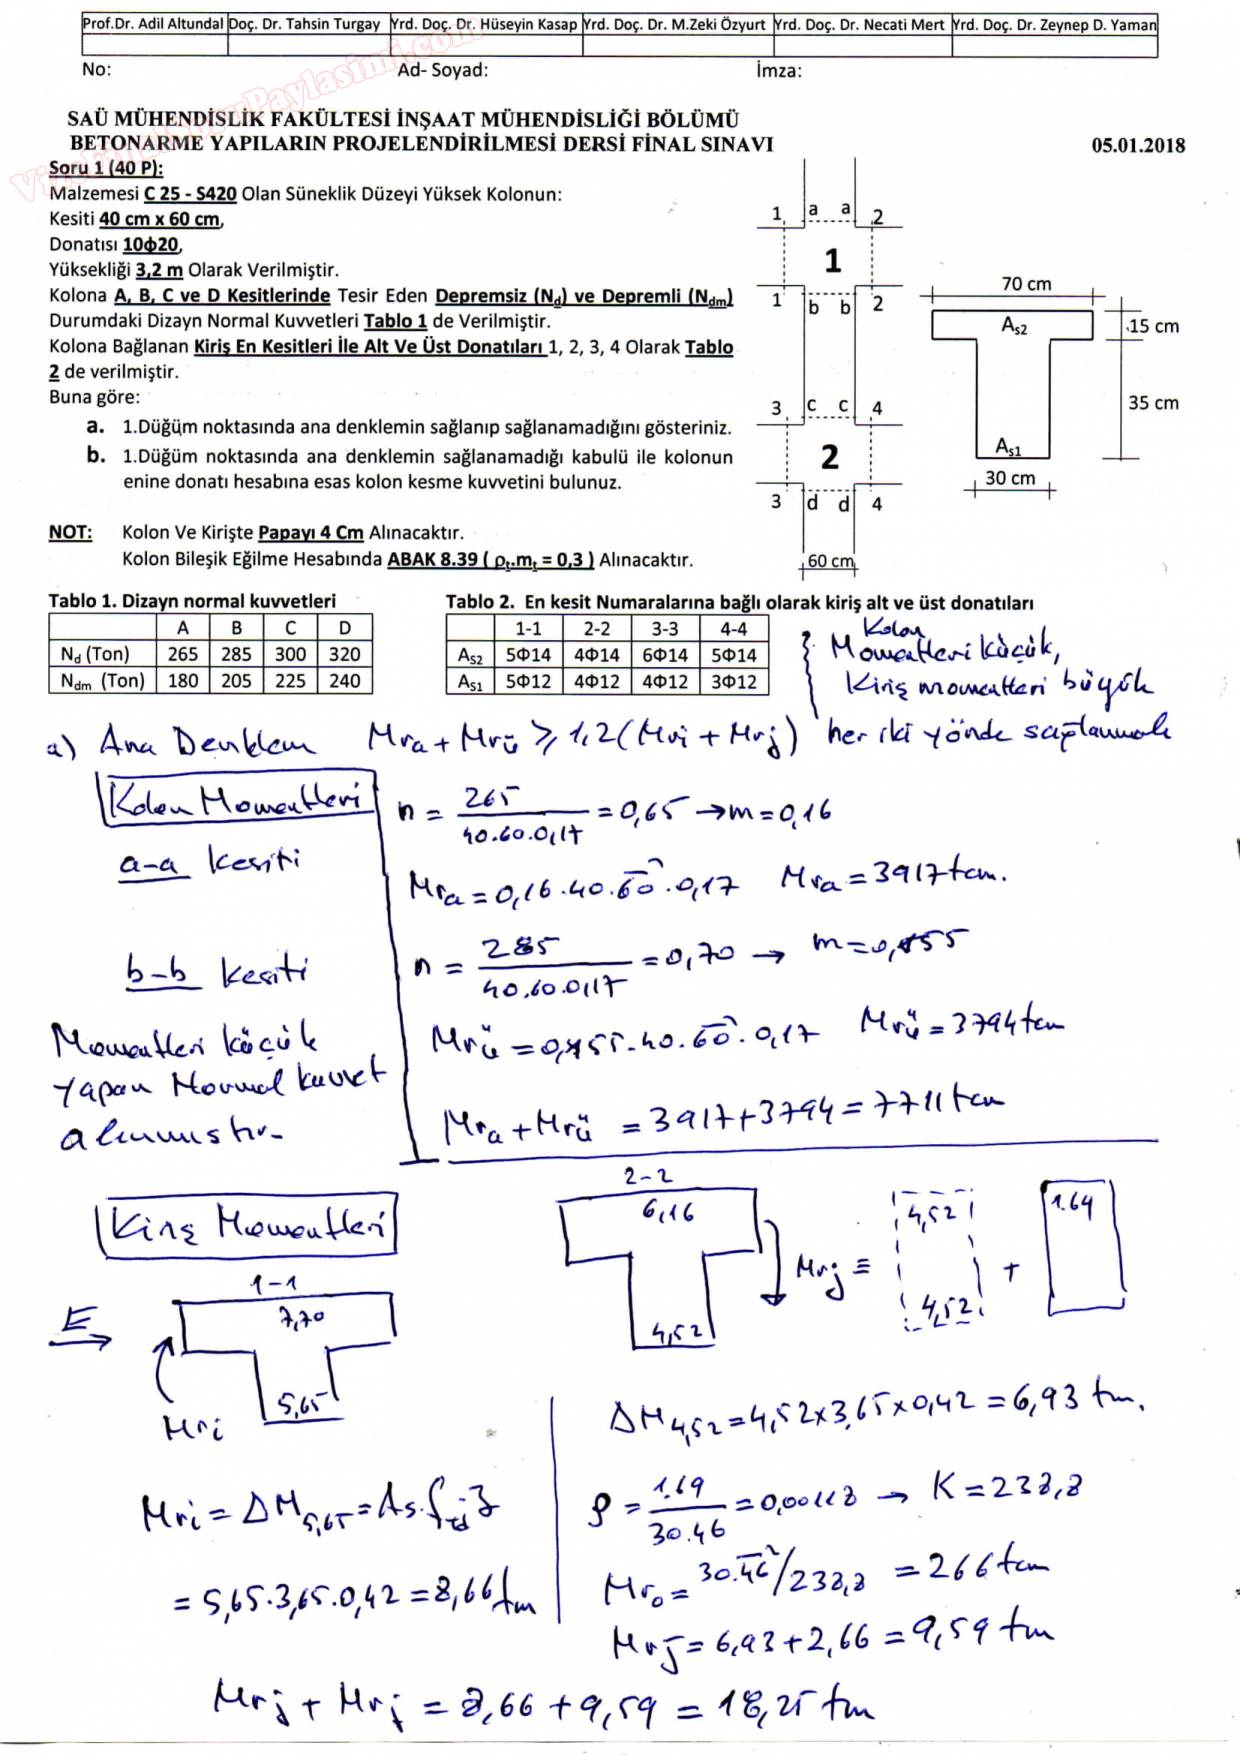 Prof.Dr. Adil Altundal Doç. Dr. Tahsin Turgay Yrd. Doç. Dr. Hüseyin Kasap Yrd. Doç. Dr. M.Zeki Özyurt Yrd. Doç. Dr. Necati Mert Yrd. Doç. Dr. Zeynep D. Yaman
No: Ad- Soyad: İmza:
SAÜ MÜHENDİSLİK FAKÜLTESİ İNŞAAT MÜHENDİSLİĞİ BÖLÜMÜ
BETONARME YAPILARIN PROJELENDİRİLMESİ DERSİ FİNAL SINAVI 05.01.2018
Soru 1 (40 P):
Malzemesi C 25 - S420 Olan Süneklik Düzeyi Yüksek Kolonun:
Kesiti 40 cm x 60 cm,
Donatısı 10Φ20,
Yüksekliği 3,2 m Olarak Verilmiştir.
Kolona A, B, C ve D Kesitlerinde Tesir Eden Depremsiz (Nd) ve Depremli (Ndm)
Durumdaki Dizayn Normal Kuvvetleri Tablo 1 de Verilmiştir.
Kolona Bağlanan Kiriş En Kesitleri İle Alt Ve Üst Donatıları 1, 2, 3, 4 Olarak Tablo
2 de verilmiştir.
Buna göre:
a. 1.Düğüm noktasında ana denklemin sağlanıp sağlanamadığını gösteriniz.
b. 1.Düğüm noktasında ana denklemin sağlanamadığı kabulü ile kolonun
enine donatı hesabına esas kolon kesme kuvvetini bulunuz.
NOT: Kolon Ve Kirişte Papayı 4 Cm Alınacaktır.
Kolon Bileşik Eğilme Hesabında ABAK 8.39 ( ρt.mt = 0,3 ) Alınacaktır.
1 a a 2
1
1 b b 2
3 c c 4
2
3 d d 4
60 cm
70 cm
As2 15 cm
35 cm
As1
30 cm
Tablo 1. Dizayn normal kuvvetleri
A B C D
Nd (Ton) 265 285 300 320
Ndm (Ton) 180 205 225 240
Tablo 2. En kesit Numaralarına bağlı olarak kiriş alt ve üst donatıları
1-1 2-2 3-3 4-4
As2 5Φ14 4Φ14 6Φ14 5Φ14
As1 5Φ12 4Φ12 4Φ12 3Φ12
Kolon
Momentleri küçük,
Kiriş momentleri büyük
a) Ana Denklem Mra + Mrü ≥ 1,2 (Mri + Mrj) her iki yönde saptanmalı
Kolon Momentleri
a-a kesiti
n = 265 / 40.60.0,17 = 0,65 → m = 0,16
Mra = 0,16.40.60².0,17 Mra = 3917 tcm.
b-b kesiti
n = 285 / 40.60.0,17 = 0,70 → m = 0,155
Momentleri küçük
yapan Normal kuvvet
alınmıştır.
Mrü = 0,155.40.60².0,17 Mrü = 3794 tcm
Mra + Mrü = 3917 + 3794 = 7711 tcm
Kiriş Momentleri
1-1
E
7,70
5,65
Mri
2-2
6,16
4,52
Mrj ≡ 4,52 4,52 + 1.64
Mri = ΔM5,65 = As.fyd.z
= 5,65.3,65.0,42 = 8,66 tm
ΔM4,52 = 4,52x3,65x0,42 = 6,93 tm.
ρ = 1.69 / 30.46 = 0,00118 → K = 238,8
Mro = 30.46²/238,8 = 266 tcm
Mrj = 6,93 + 2,66 = 9,59 tm
Mrj + Mrj = 8,66 + 9,59 = 18,25 tm